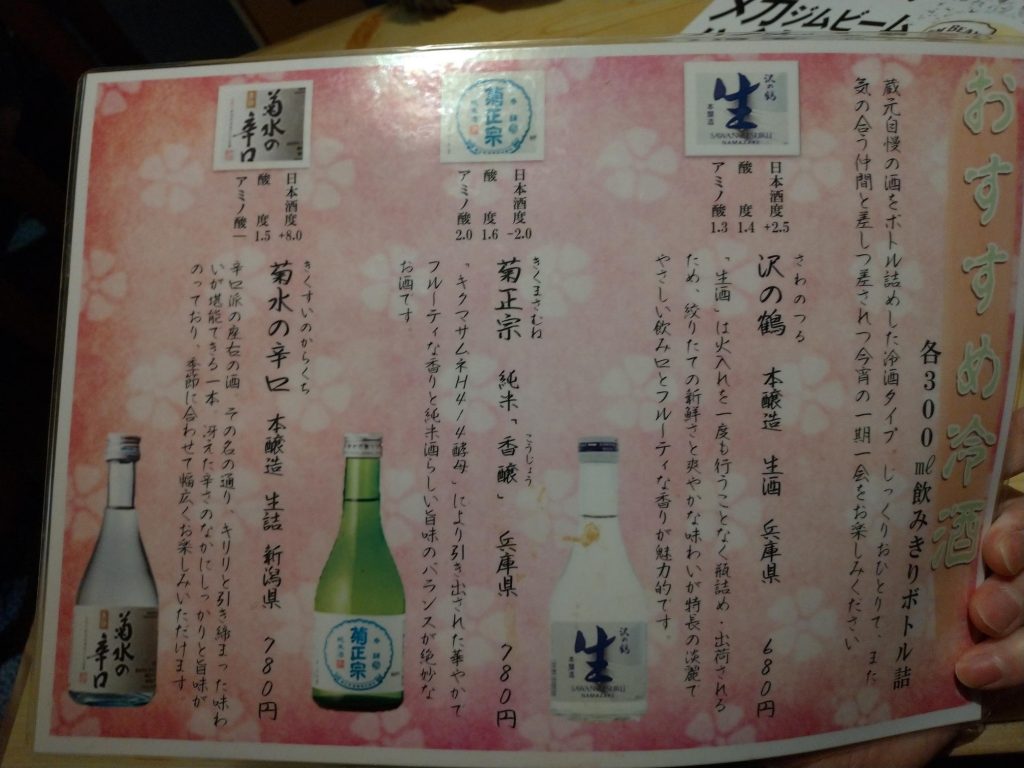 メガジムビーム
おすすめ冷酒
各300㎖飲みきりボトル詰
蔵元自慢の酒をボトル詰めした冷酒タイプ。じっくりおひとりで、また
気の合う仲間と差しつ差されつ今宵の一期一会をお楽しみください
沢の鶴
生
本醸造
SAWANOTSURU
NAMAZAKE
日本酒度 +2.5
酸度 1.4
アミノ酸 1.3
さわのつる
沢の鶴 本醸造 生酒 兵庫県 680円
「生酒」は火入れを一度も行うことなく瓶詰め・出荷される
ため、絞りたての新鮮さと爽やかな味わいが特長の淡麗で
やさしい飲み口とフルーティな香りが魅力的です。
沢の鶴
生
本醸造
SAWANOTSURU
NAMAZAKE
菊正宗
日本酒度 -2.0
酸度 1.6
アミノ酸 2.0
きくまさむね
こうじょう
菊正宗 純米「香醸」 兵庫県 780円
「キクマサムネHA14酵母」により引き出された華やかで
フルーティな香りと純米酒らしい旨味のバランスが絶妙な
お酒です。
菊正宗
純米酒
菊水の
辛口
日本酒度 +8.0
酸度 1.5
アミノ酸 ー
きくすいのからくち
菊水の辛口 本醸造 生詰 新潟県 780円
辛口派の座右の酒 その名の通り、キリリと引き締まった味わ
いが堪能できる一本。冴えた辛さのなかにしっかりと旨味が
のっており、季節に合わせて幅広くお楽しみいただけます
菊水の
辛口